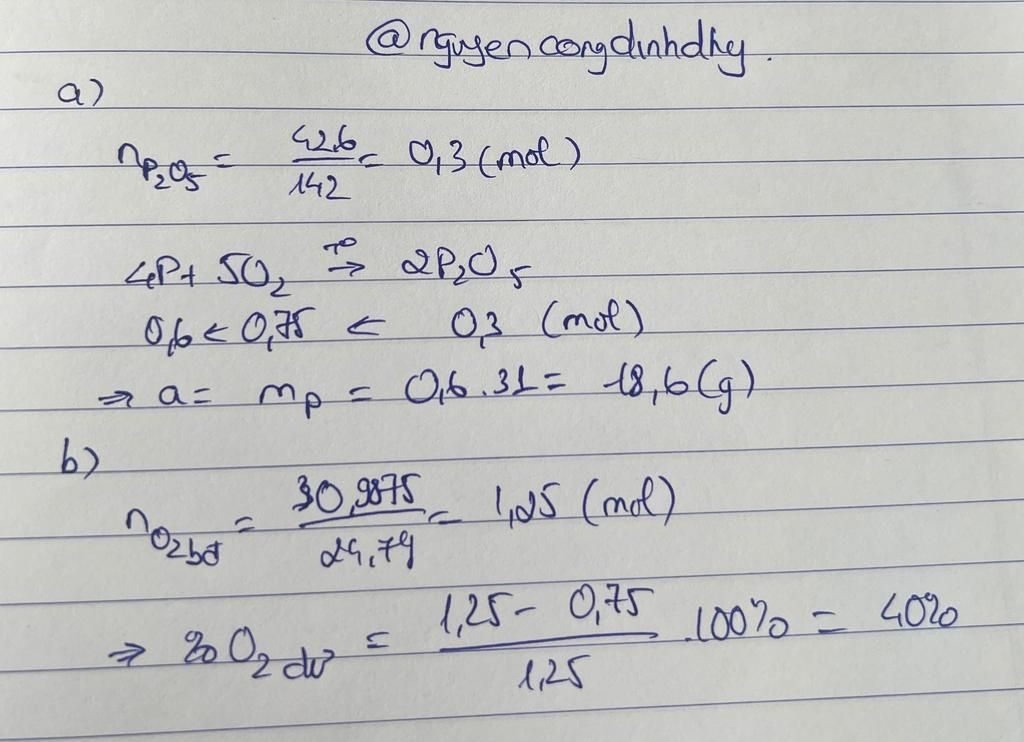 @nguyencongdinhdhy.
a)
nP₂O₅ = 42,6/142 = 0,3 (mol)
4P + 5O₂ →(T⁰) 2P₂O₅
0,6 ← 0,75 ← 0,3 (mol)
⇒ a = mP = 0,6.31 = 18,6 (g)
b)
nO₂bđ = 30,9875/24,79 = 1,25 (mol)
⇒ %O₂ dư = (1,25 - 0,75)/1,25 .100% = 40%